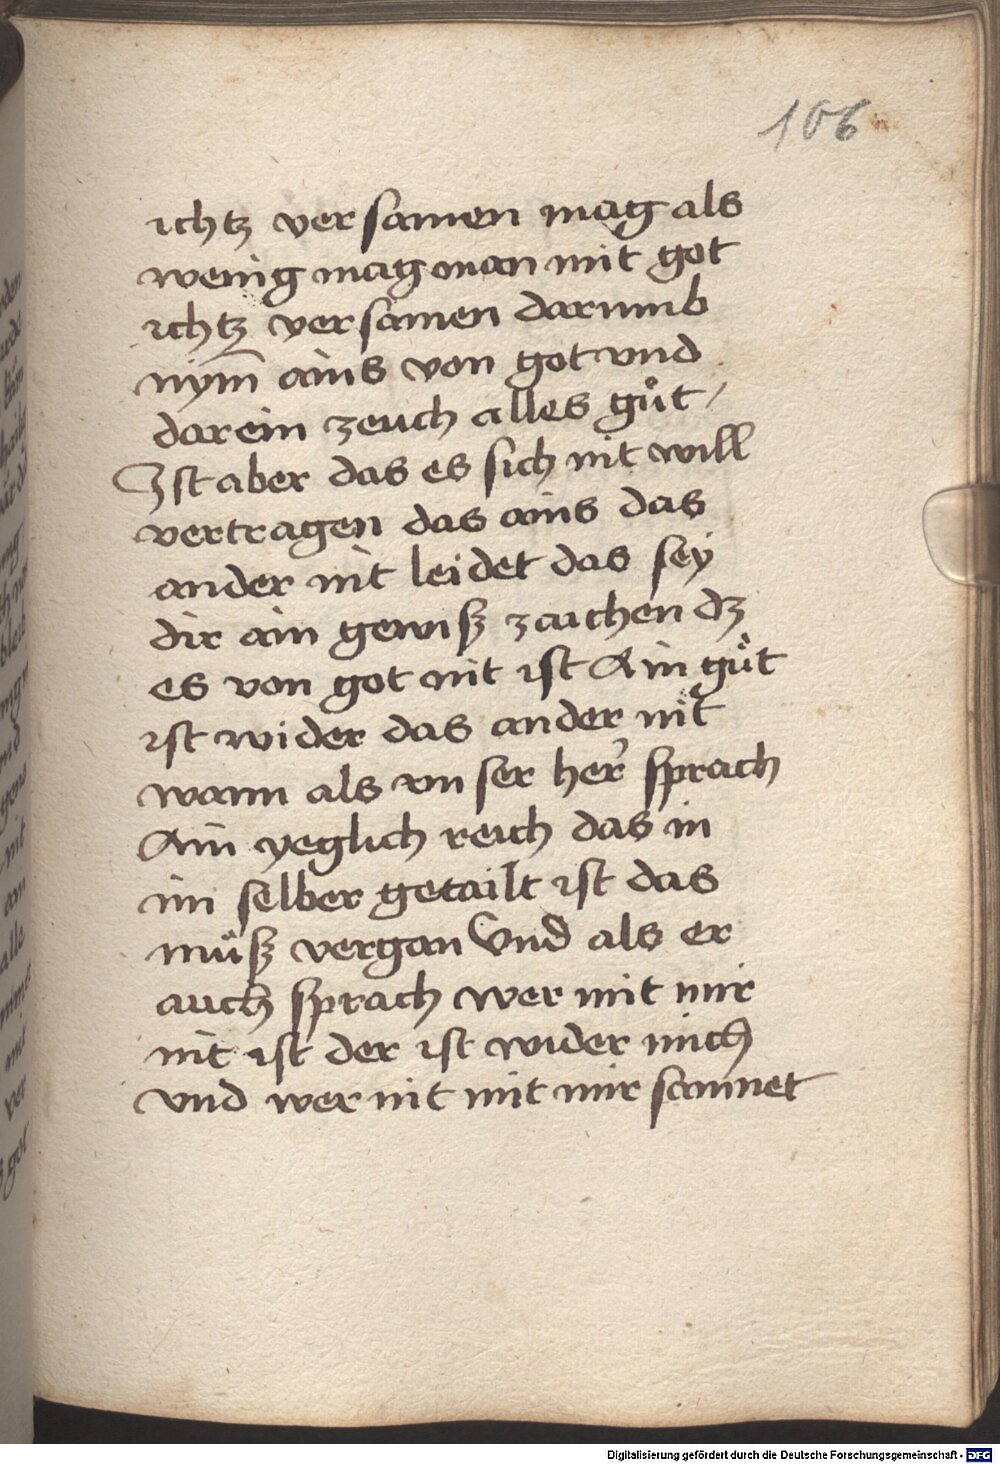 106
ichtz ver samen mag als
wenig mag man mit got
ichtz ver samen darumb
nym̄ ains von got vnd
darein zeuch alles gůt /
Ist aber das es sich nit will
vertragen das ains das
ander nit leidet das sey
dir ain gewiſz zaichen dz
es von got nit ist Ain gůt
ist wider das ander nit
wann als vn ser her̉ sprach
Ain yeglich reich das in
im selber getailt ist das
můſz vergan Vnd als er
auch sprach wer mit mir
nit ist der ist wider mich
vnd wer nit mit mir samnet
Digitalisierung gefördert durch die Deutsche Forschungsgemeinschaft - DFG